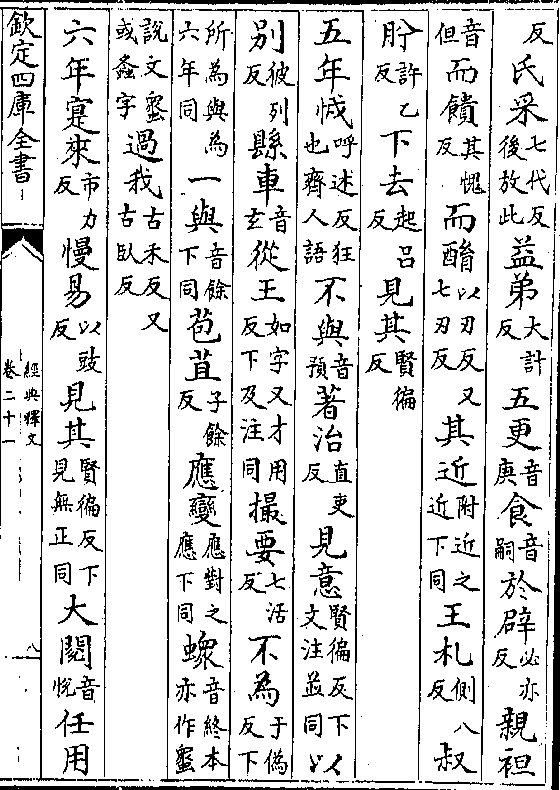 反氏采七代反後放此益弟大計反五更音庚食音嗣於辟必亦反親袒
音但而饋其愧反而酳以刃反又七刃反其近附近之近下同王札側八反叔
肸許乙反下去起呂反見其賢徧反
五年怴呼述反狂也齊人語不與音預著治直吏反見意賢徧反下文注並同以
別彼列反縣車音玄從王如字又才用反下及注同撮要七活反不為于偽反下
所為與為六年同一與音餘下同苞苴子餘反應變應對之應下同䗥音終本亦作𧒂
說文𧒂或螽字過我古禾反又古臥反
六年寔來市力反慢易以豉反見其賢徧反下見無正同大閱音悅任用
欽定四庫全書
經典釋文
卷二十一
八